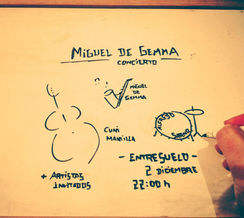 MIGUEL DE GEMMA
CONCIERTO
MIGUEL
DE
GEMMA
CURÍ
MANCILLA
+ ARTISTAS
INVITADOS
- ENTRESUELO -
2 DICIEMBRE
22:00 h